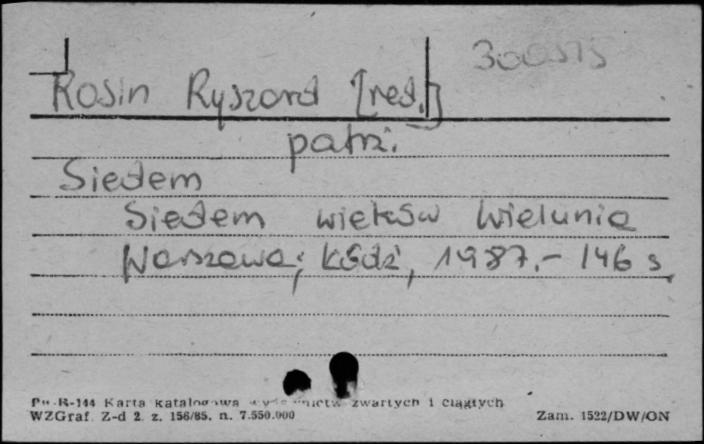 300515
Rosin Ryszard [red.]
patrz.
Siedem
Siedem wieków Wielunia
Warszawa; Łódź, 1987.- 146 s.
Pu-B-144 Karta katalogowa wydawnictw zwartych i ciągłych
WZGraf. Z-d 2. z. 156/85. n. 7.550.000
Zam. 1522/DW/ON